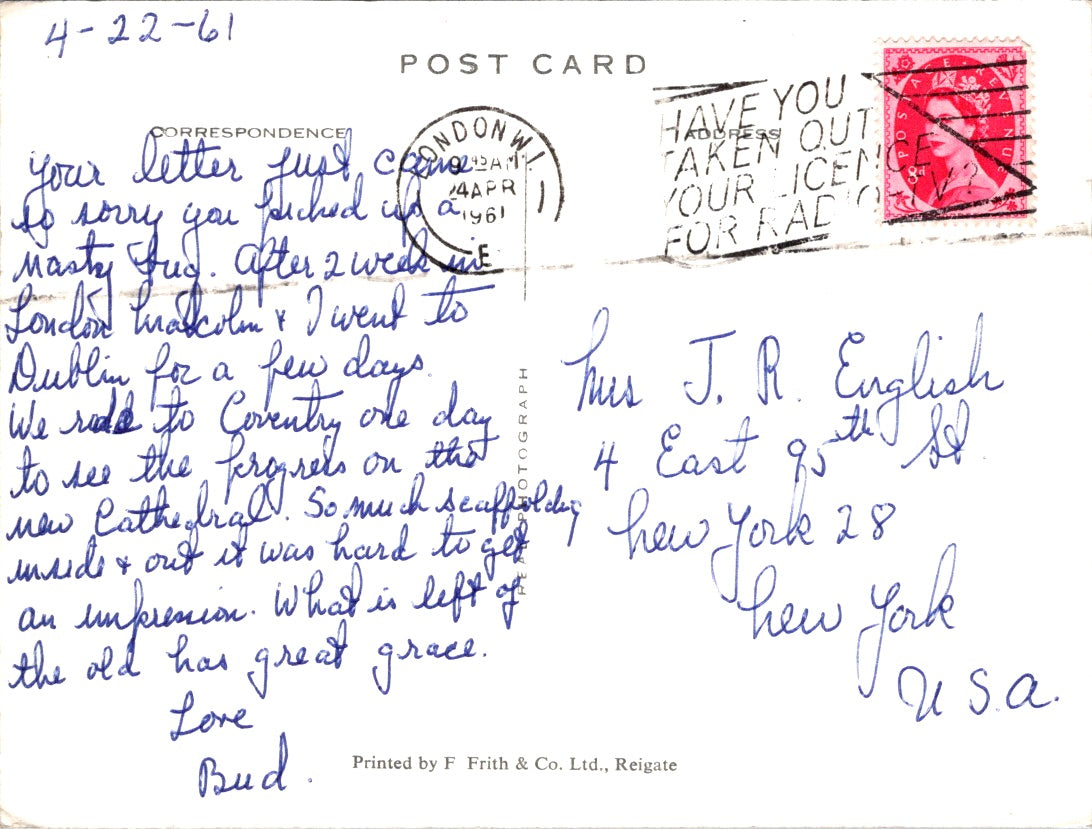 4-22-61
POST CARD
CORRESPONDENCE
ADDRESS
LONDON W.1.
9 45 AM
24 APR
1961
E
HAVE YOU
TAKEN OUT
YOUR LICENCE
FOR RADIO-TV?
POSTAGE REVENUE
8d
Your letter just came
so sorry you picked up a
nasty bug. After 2 week in
London Malcolm & I went to
Dublin for a few days.
We rode to Coventry one day
to see the progress on the
new Cathedral. So much scaffolding
inside & out it was hard to get
an impression. What is left of
the old has great grace.
Love
Bud.
REAL PHOTOGRAPH
Mrs J. R. English
4 East 95th St
New York 28
New York
U.S.A.
Printed by F Frith & Co. Ltd., Reigate